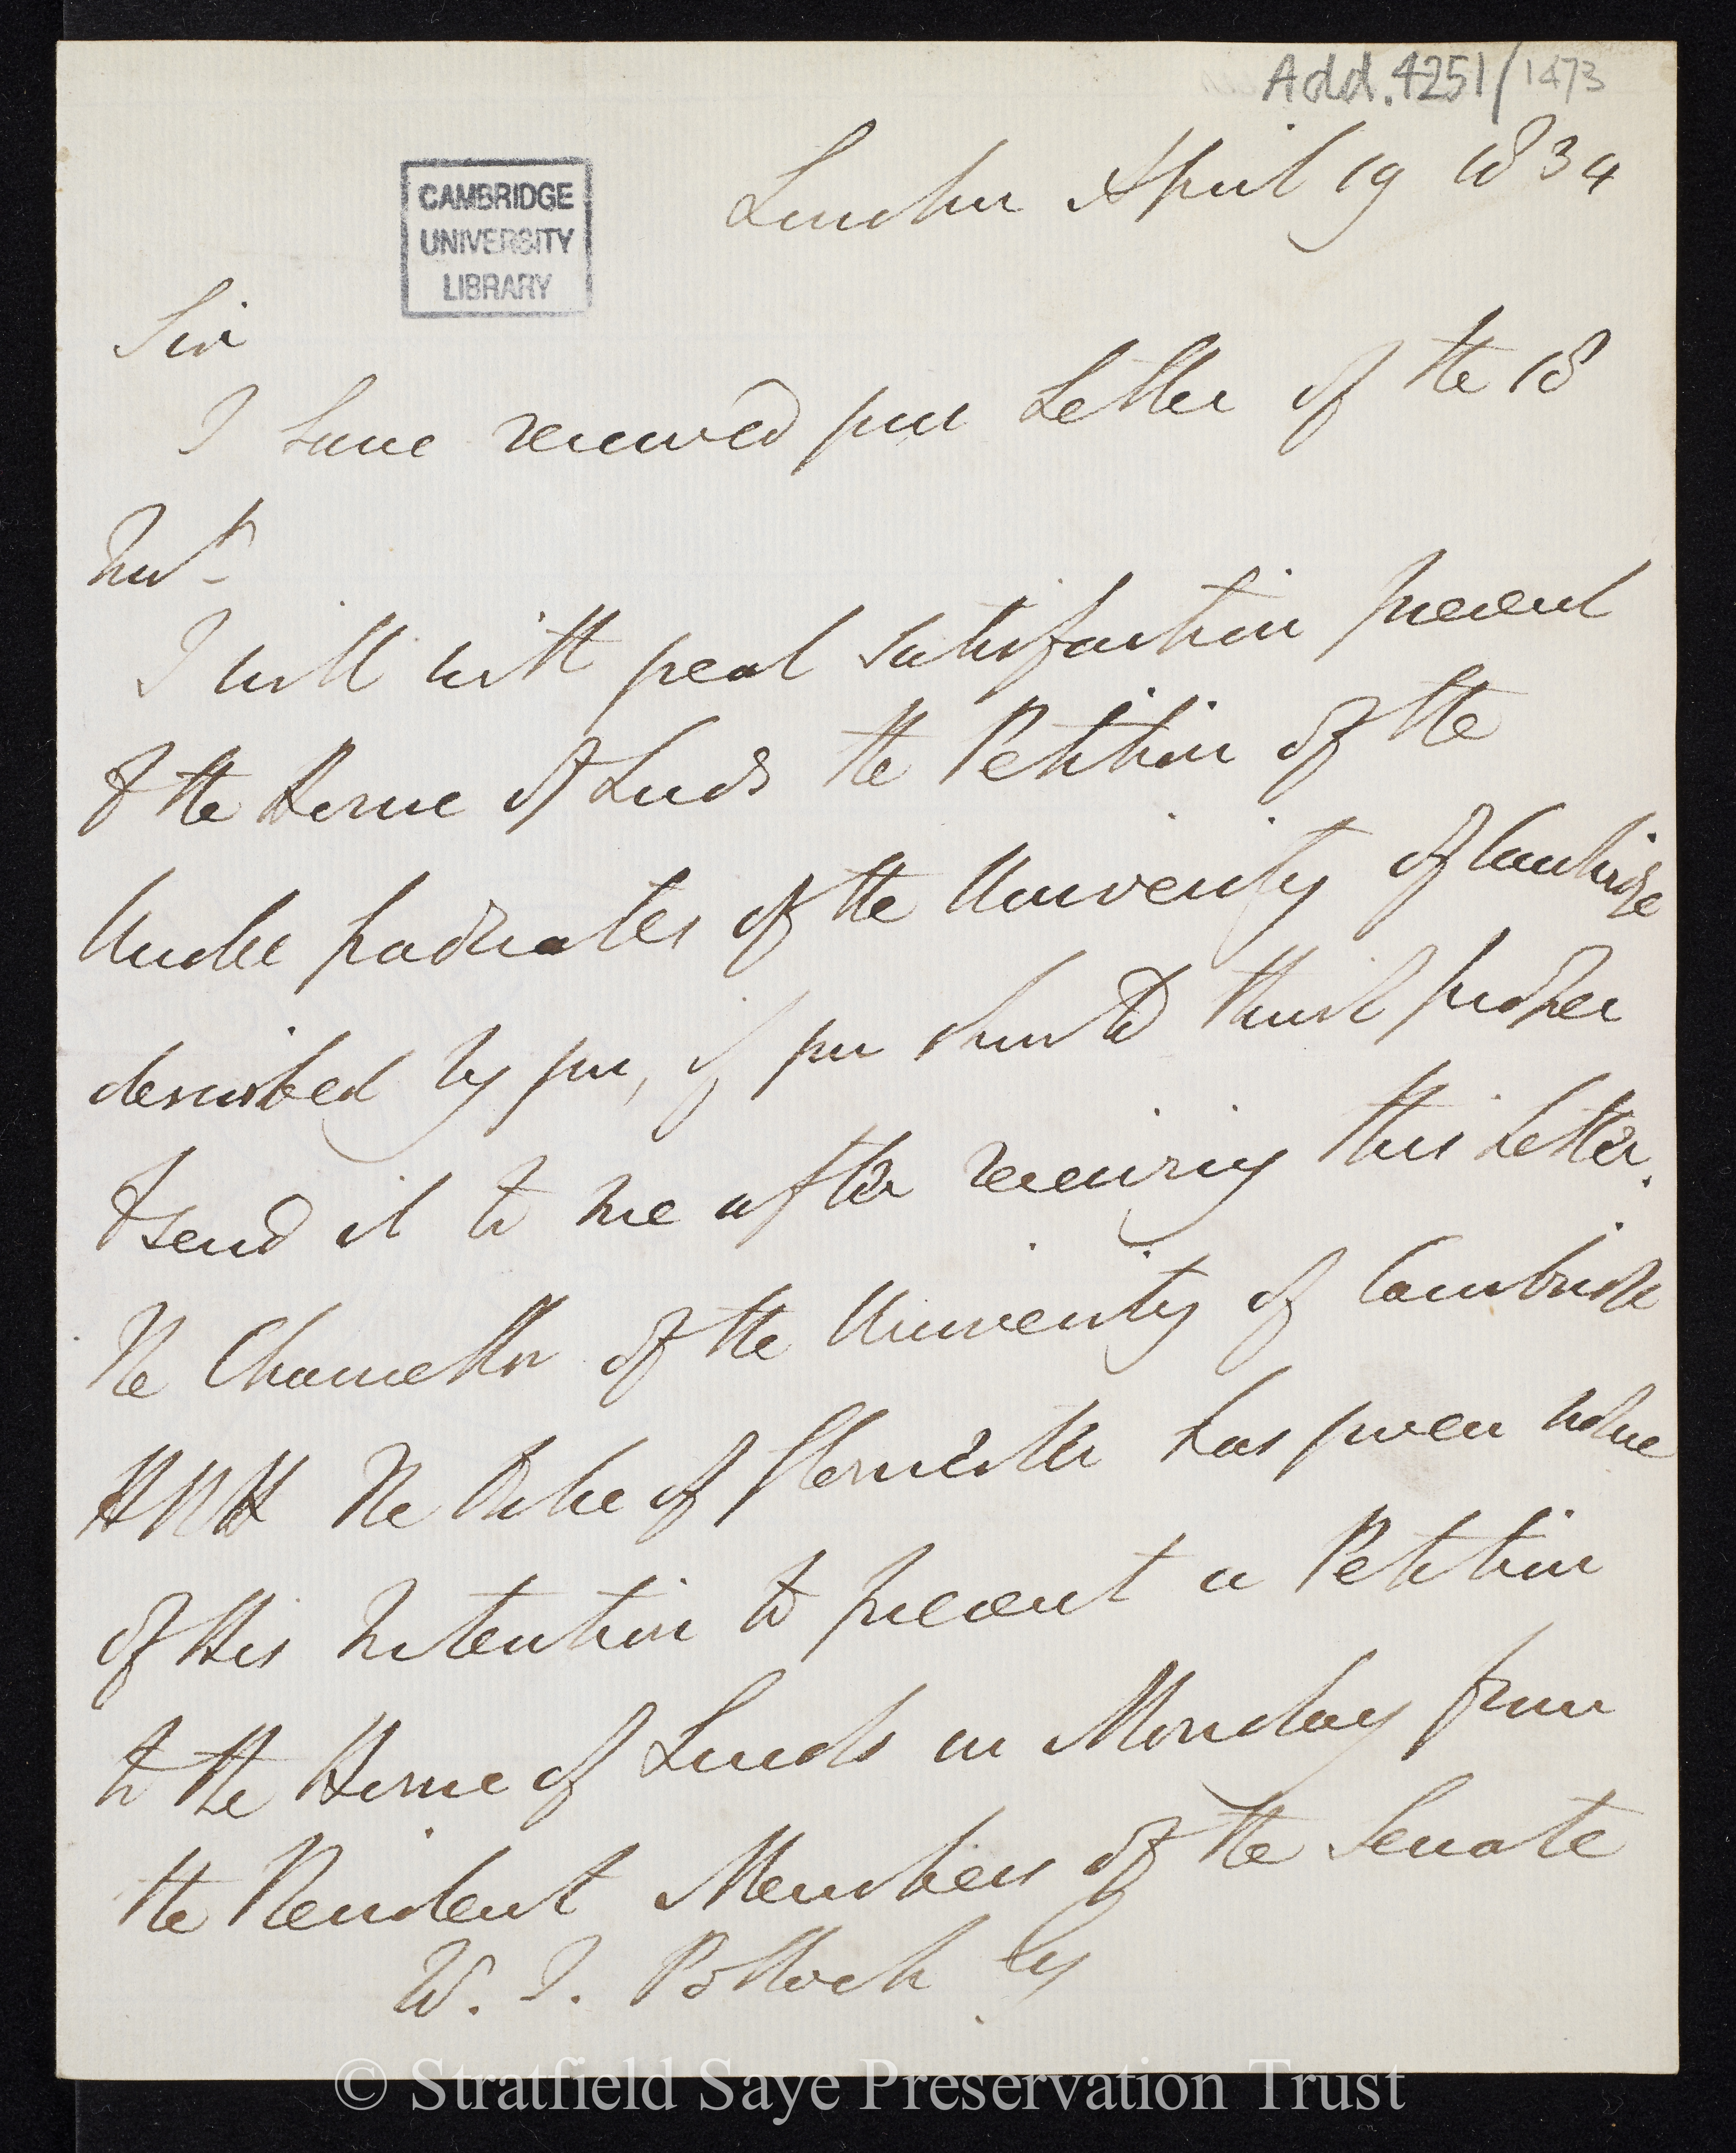 Add.4251/1473
CAMBRIDGE
UNIVERSITY
LIBRARY
London April 19 1834
Sir
I have received your Letter of the 18
Inst.
I will with great satisfaction present
to the House of Lords the Petition of the
Under graduates of the University of Cambridge
described by you, if you should think proper
to send it to me after receiving this Letter.
The Chancellor of the University of Cambridge
HRH The Duke of Gloucester has given notice
of His Intention to present a Petition
to the House of Lords on Monday from
the Resident Members of the Senate
W. F. Pollock Esq
© Stratfield Saye Preservation Trust